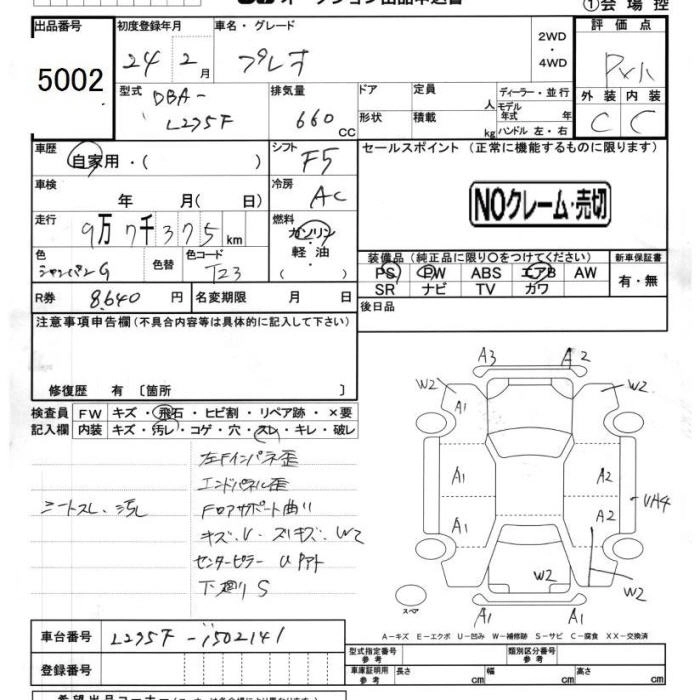 オークション出品申込書
①会場控
出品番号 初度登録年月 車名・グレード 評価点
5002 24年2月 プレオ 2WD・4WD
型式 DBA-L275F 排気量 660CC
ドア 定員 人 ディーラー・並行
形状 積載 kg モデル年式 年
ハンドル 左・右
外装 内装
C C
車歴 自家用・( ) シフト F5
セールスポイント(正常に機能するものに限ります)
車検 年 月( 日) 冷房 AC
NOクレーム・売切
走行 9万7千375km 燃料 ガソリン・軽油・( )
色 シャンパンG 色替 色コード T23
装備品(純正品に限り○をつけてください) 新車保証書
PS PW ABS エアB AW 有・無
SR ナビ TV カワ
R券 8640円 名変期限 月 日 後日品
注意事項申告欄(不具合内容等は具体的に記入して下さい)
修復歴 有[箇所 ]
検査員 FW キズ・飛石・ヒビ割・リペア跡・×要
記入欄 内装 キズ・汚レ・コゲ・穴・スレ・キレ・破レ
左Fインパネ歪
エンドパネル歪
シートスレ、汚レ
Fロアサポート曲り
キズ・U・スリキズ・W2
センターピラー Uアト
下廻りS
A3 A2
W2 W2
A1 A1
A1 A2
A1 A2 UH4
W2 W2
A1 A1
スペア
A-キズ E-エクボ U-凹み W-補修跡 S-サビ C-腐食 XX-交換済
車台番号 L275F-1502141
型式指定番号 参考 類別区分番号 参考
登録番号 車庫証明用 参考 長さ cm 幅 cm 高さ cm